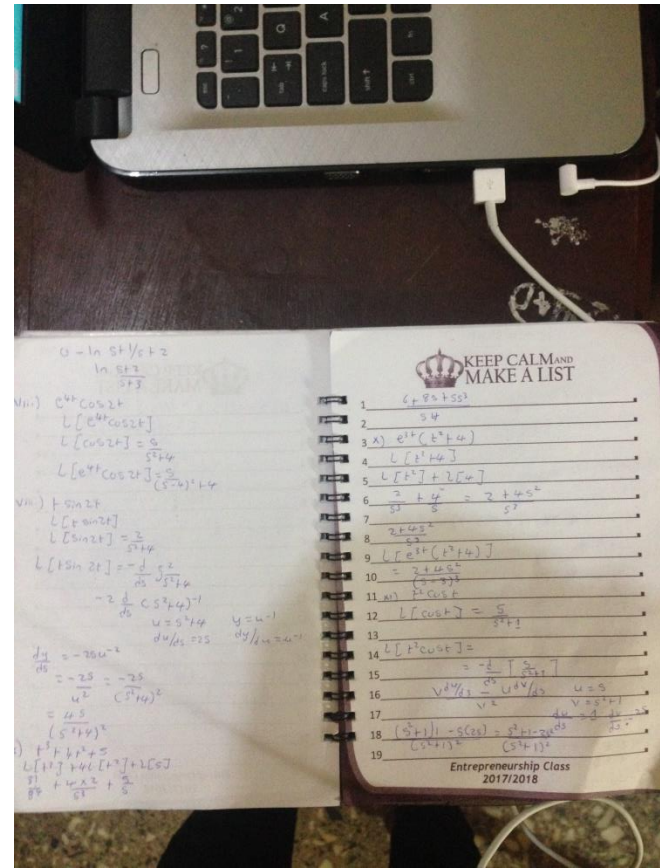 0 - ln s+1/s+2
ln s+2/s+3
viii) e^4t cos2t
L[e^4t cos2t]
L[cos2t] = s/s²+4
L[e^4t cos2t] = s/(s-4)²+4
vii.) t sin2t
L[t sin2t]
L[sin2t] = 2/s²+4
L[t sin 2t] = -d/ds 2/s²+4
-2 d/ds (s²+4)^-1
u = s²+4 y = u^-1
du/ds = 2s dy/du = u^-1
dy/ds = -2su^-2
= -2s/u² = -2s/(s²+4)²
= 4s/(s²+4)²
) t³ + 4t² + 5
L[t³] + 4L[t²] + L[5]
3!/s⁴ + 4×2/s³ + 5/s
KEEP CALM AND
MAKE A LIST
1 6+8s+5s³
2 s4
3 x) e^3t (t²+4)
4 L[t²+4]
5 L[t²] + L[4]
6 2/s³ + 4/s = 2+4s²/s³
7
8 2+4s²/s³
9 L[e^3t (t²+4)]
10 = 2+4s²/(s-3)³
11 xi) t²cost
12 L[cost] = s/s²+1
13
14 L[t²cost] =
15 = -d/ds [s/s²+1]
16 Vdu/ds - Udv/ds / V² u = s
v = s²+1
17 du/ds = 1 dv/ds = 2s
18 (s²+1)1 - s(2s)/(s²+1)² = s²+1-2s²/(s²+1)²
19
Entrepreneurship Class
2017/2018
esc
tab
caps lock
shift
ctrl
fn
Q
A
Z
1
2